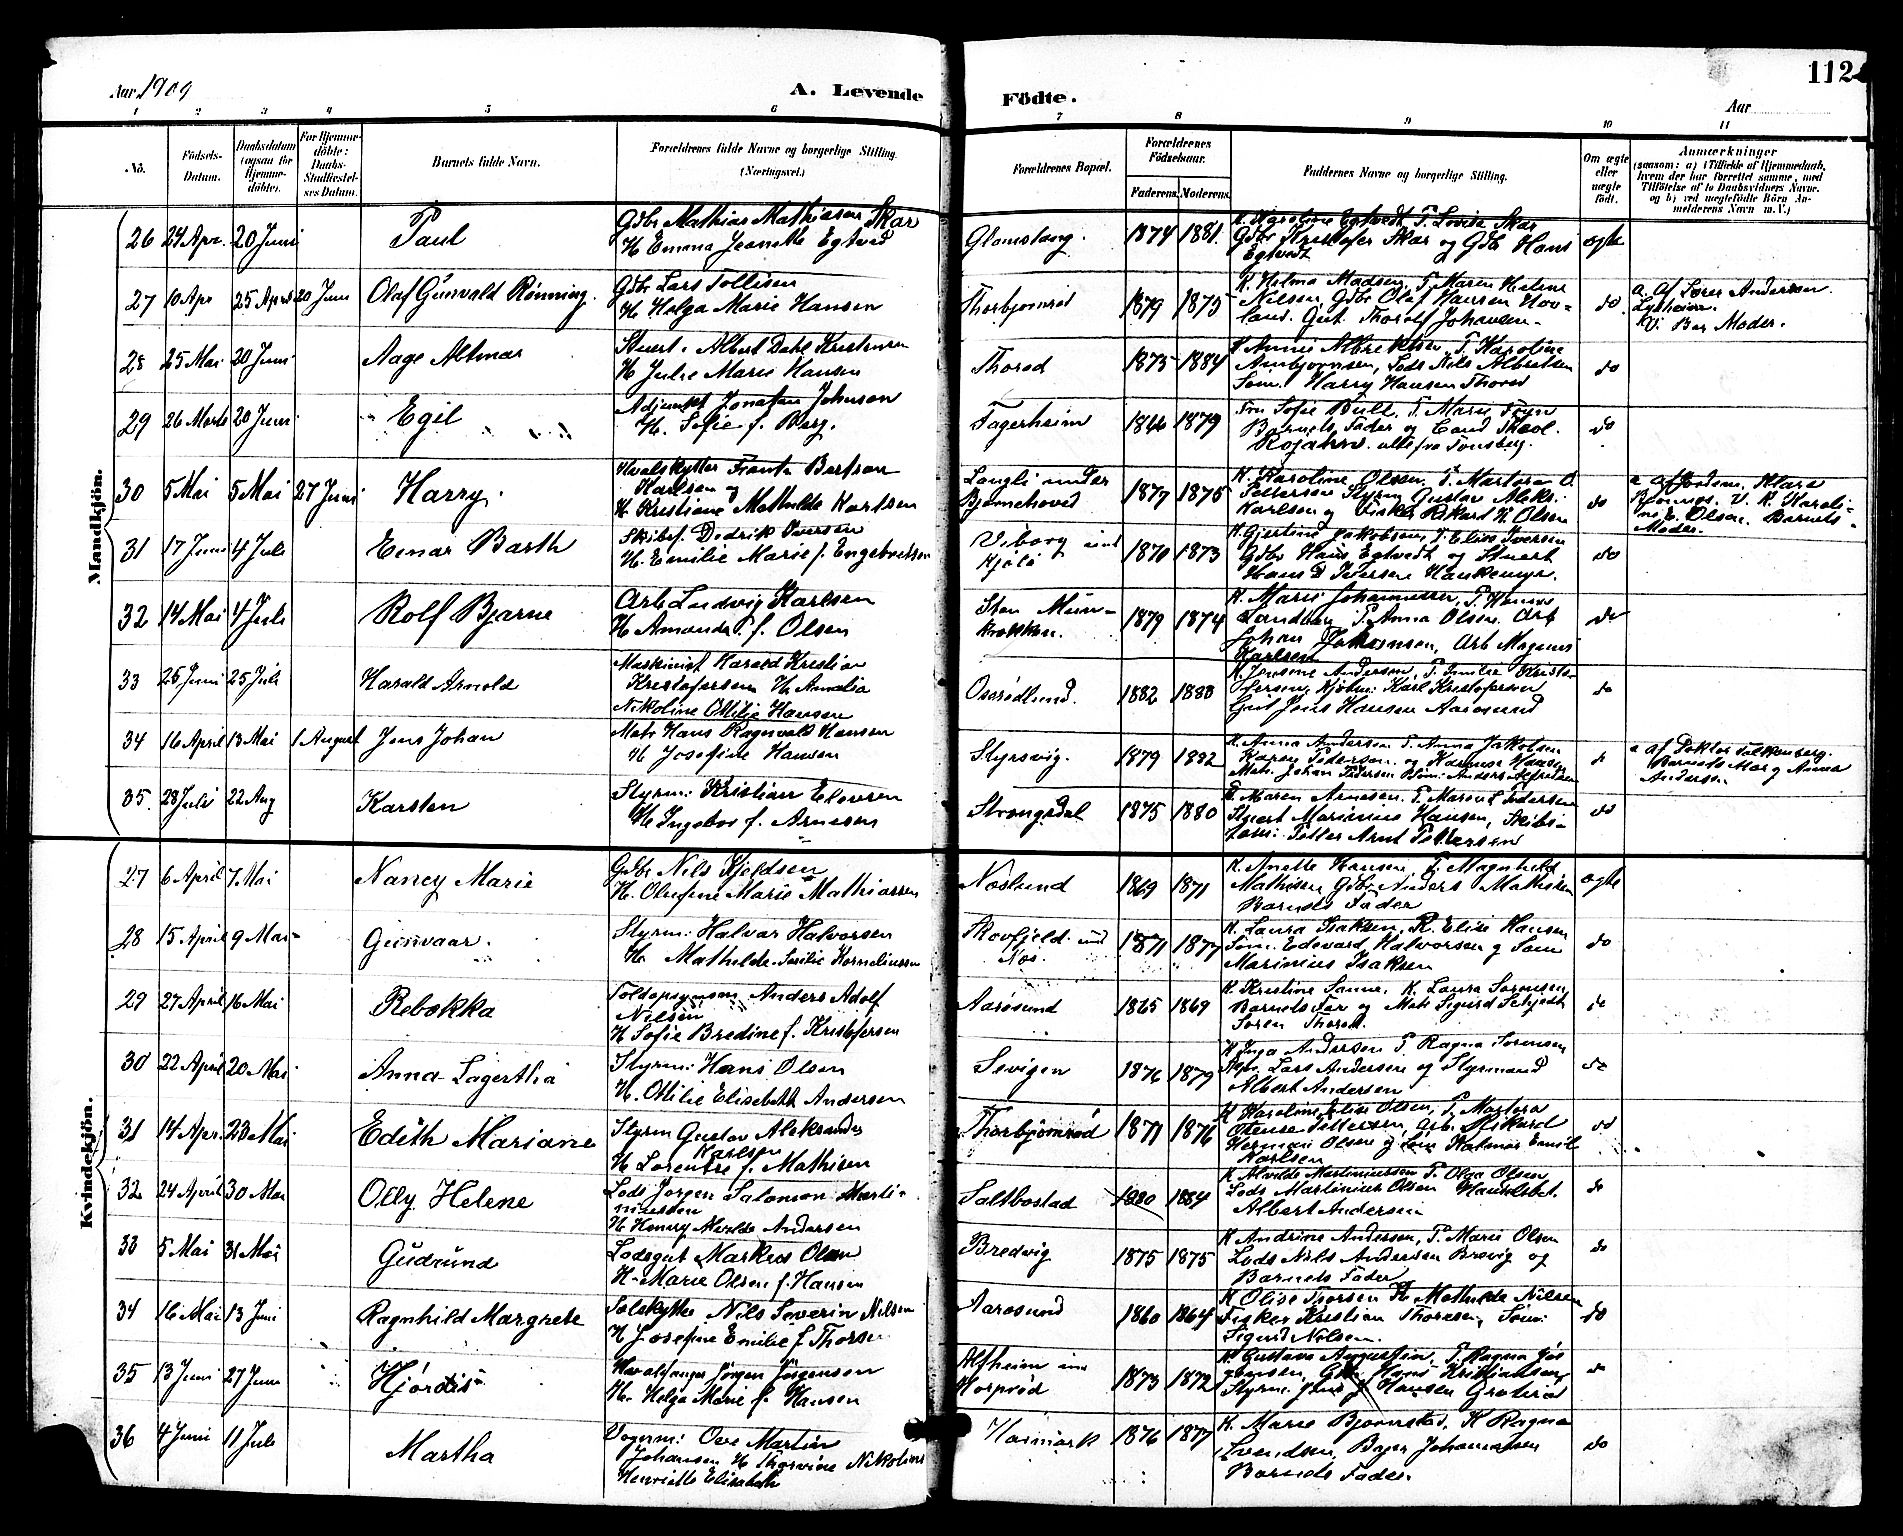 112
Aar 1909
A. Levende Födte.
Aar
1 2 3 4 5 6 7 8 9 10 11
No.
Födsels-Datum.
Daabsdatum (ogsaa for Hjemmedöbte).
For Hjemmedöbte: Daabs-Stadfæstelses Datum.
Barnets fulde Navn.
Forældrenes fulde Navne og borgerlige Stilling. (Næringsvei.)
Forældrenes Bopæl.
Forældrenes Födselsaar.
Faderens. Moderens.
Faddernes Navne og borgerlige Stilling.
Om ægte eller uægte födt.
Anmærkninger
(saasom: a) i Tilfælde af Hjemmedaab, hvem der har forrettet samme, med Tilföielse af to Daabsvidners Navne, og b) ved uægtefödte Börn Anmelderens Navn m. V.)
Mandkjön.
26 24 Apr. 20 Juni Paul Gdbr Mathias Mathiasen Skar
H Emma Jeanette Egtved Glomstang. 1874 1881. K. Karoline Egtvedt P. Lovise Skar
Gdbr Kristofer Skar og Gdb Hans
Egtvedt ægte
27 10 Apr 25 April 20 Juni Olaf Gunvald Rönning. Gdbr Lars Tollisen
H Helga Marie Hansen Thorbjørnrød 1879 1875 K. Helma Madsen, P. Maren Helene
Nilsen, Gdbr Olaf Hansen Hov-
land. Gut Thorolf Johansen. do a. Af Lærer Andersen
V: Bar Moder.
28 25 Mai 20 Juni Aage Altmar Stuert. Albert Dahl Kristensen
H Julie Marie Hansen Thorød 1875 1884 K Annie Albrektsen, P. Karoline
Arnbjørnsen, Lods Nils Albretsen
Søm. Harry Hansen Thorød do
29 26 Marts 20 Juni Egil Adjunkt Jonatan Johnson
H. Sofie f. Berg. Fagerheim 1866 1879 Fru Sofie Bull. P. Marie Foyn
Barnets Fader og Cand Theol.
Rojahn. alle fra Tønsberg. do
30 5 Mai 5 Mai 27 Juni Harry. Hvalskytter Frants Bertran
Karlsen og
H Kristiane Mathilde Karlsen Longli under
Bjørnehoved 1877 1875 K. Karoline Olsen, P. Martora O.
Pettersen Styrm Gustav Aleks.
Karlsen og Fisker Rikard H. Olsen do a af Jordem. Klara
Rönnes. V. K. Karoli-
ne E. Olsen. Barnets
Moder.
31 17 Juni 4 Juli Einar Barth Skibsf. Dedrik Iversen
H. Emilie Marie f. Engebretsen Viborg und
Kjøle 1870 1873 K. Gjertine Jakobsen, P. Elise Iversen
Gdbr Hans Egtvedt og Stuert
Hans D Petersen Haukemyr. do
32 14 Mai 4 Juli Rolf Bjarne Arb Ludvig Karlsen
H Amanda P. f. Olsen Sten Mun-
krækken. 1879 1874 K. Marie Johannesen, P. Hanna
Landberg P. Anna Olsen. Arb
Johan Johansen, Arb Magnus
Karlsen do
33 25 Juni 25 Juli Harald Arnold Maskinist Harald Kristian
Kristofersen H. Amalia
Nikoline Ottilie Hansen Oserødlund. 1882 1883 K. Jensine Andersen, P. Emilie Kristo-
fersen, Kjøbm: Karl Kristofersen
Gut Jens Hansen Aarøsund do
34 16 April 13 Mai 1 August Jens Johan Matr Hans Ragnvald Hansen
H Josefine Hansen Styrsvig. 1879 1882 K. Anna Andersen P. Anna Jakobsen
Karen Pedersen og Karense Hansen
Matr. Johan Pedersen Søm: Anders Alfredsen do a af Doktor Falkenberg.
Barnets Mor og Anna
Andersen
35. 28 Juli 22 Aug Karsten Styrm: Kristian Elovsen
H Ingebor f. Arnesen Strengsdal 1875 1880 K. Maren Arnesen. P. Margit Pedersen
Stuert Marinius Hansen, Skibs-
tøm: Petter Arnt Pettersen do
Kvindekjön.
27 6 April 7 Mai Nancy Marie Gdbr Nils Kjeldsen
H. Olufine Marie Mathiassen Næslund 1869 1871 K. Anette Hansen, P. Magnhild
Mathisen Gdbr Anders Mathisen
Barnets Fader ægte
28 15 April 9 Mai Gunvaar. Styrm: Halvar Halvorsen
H. Mathilde Emilie Korneliussen Skovfjeld und
Næs. 1871 1877 K. Laura Isaksen, K. Elise Hansen
Søm. Edevard Halvorsen og Søm
Marinius Isaksen do
29 27 April 16 Mai Rebekka Toldopsynsm Anders Adolf
Nilsen
H Sofie Bredine f. Kristofersen Aarøsund 1865 1869 K Kristine Sanne. K. Laura Sørensen,
Barnets Far og Matr Sigurd Schjødt
Søren Thorød. do
30 22 April 20 Mai Anna Lagertha Styrm: Hans Olsen
H. Ottilie Elisebeth Andersen Sevigen 1876 1879 K Inga Andersen P. Ragna Sørensen
Skpr. Lars Andersen og Styrmand
Albert Andersen do
31 14 Apr. 23 Mai Edith Mariane Styrm Gustav Aleksander
Karlsen
H Lorentse f. Mathisen Thorbjørnrød 1871 1876 K Karoline Elise Olsen, P. Martora
Otense Pettersen, Arb. Rikard
Herman Olsen og Søm Hatmar Emil
Karlsen do
32 24 April 30 Mai Olly Helene Lods Jørgen Salomon Marti-
niussen
H Henny Alvilde Andersen Saltbostad 1880 1884 K Alvilde Martiniussen P. Olga Olsen
Lods Martinius Olsen Handelsbet.
Albert Andersen do
33 5 Mai 31 Mai Gudrund Lodsgut Markus Olsen
H. Marie Olsen f. Hansen Bredvig 1875 1875 K Andrine Andersen, P. Marie Olsen
Lods Nils Andersen Brevig og
Barnets Fader do
34 16 Mai 13 Juni Ragnhild Margrete Selskytter Nils Severin Nilsen
H Josefine Emilie f Thorsen Aarøsund 1860 1864 K Olise Thorsen K Mathilde Nilsen
Fisker Kristian Thoresen, Søm:
Sigurd Nilsen. do
35 13 Juni 27 Juni Hjørdis Hvalfanger Jørgen Jørgensen
H. Helga Marie f. Hansen Altheim und
Horprød 1873 1872 K. Gustava Augustin, P. Ragna Jør
gensen, Gbr. Hans Kristiansen
Styrm. Jens J Hansen Grøterød do
36 4 Juni 11 Juli Martha Tøgerm: Ove Martin
Johansen H Thorvine Nikoline
Henriette Elisabeth Heimark 1876 1877 K. Marie Bjørnstad, K Ragna
Svendsen, Byger Johannesen
Barnets Fader do